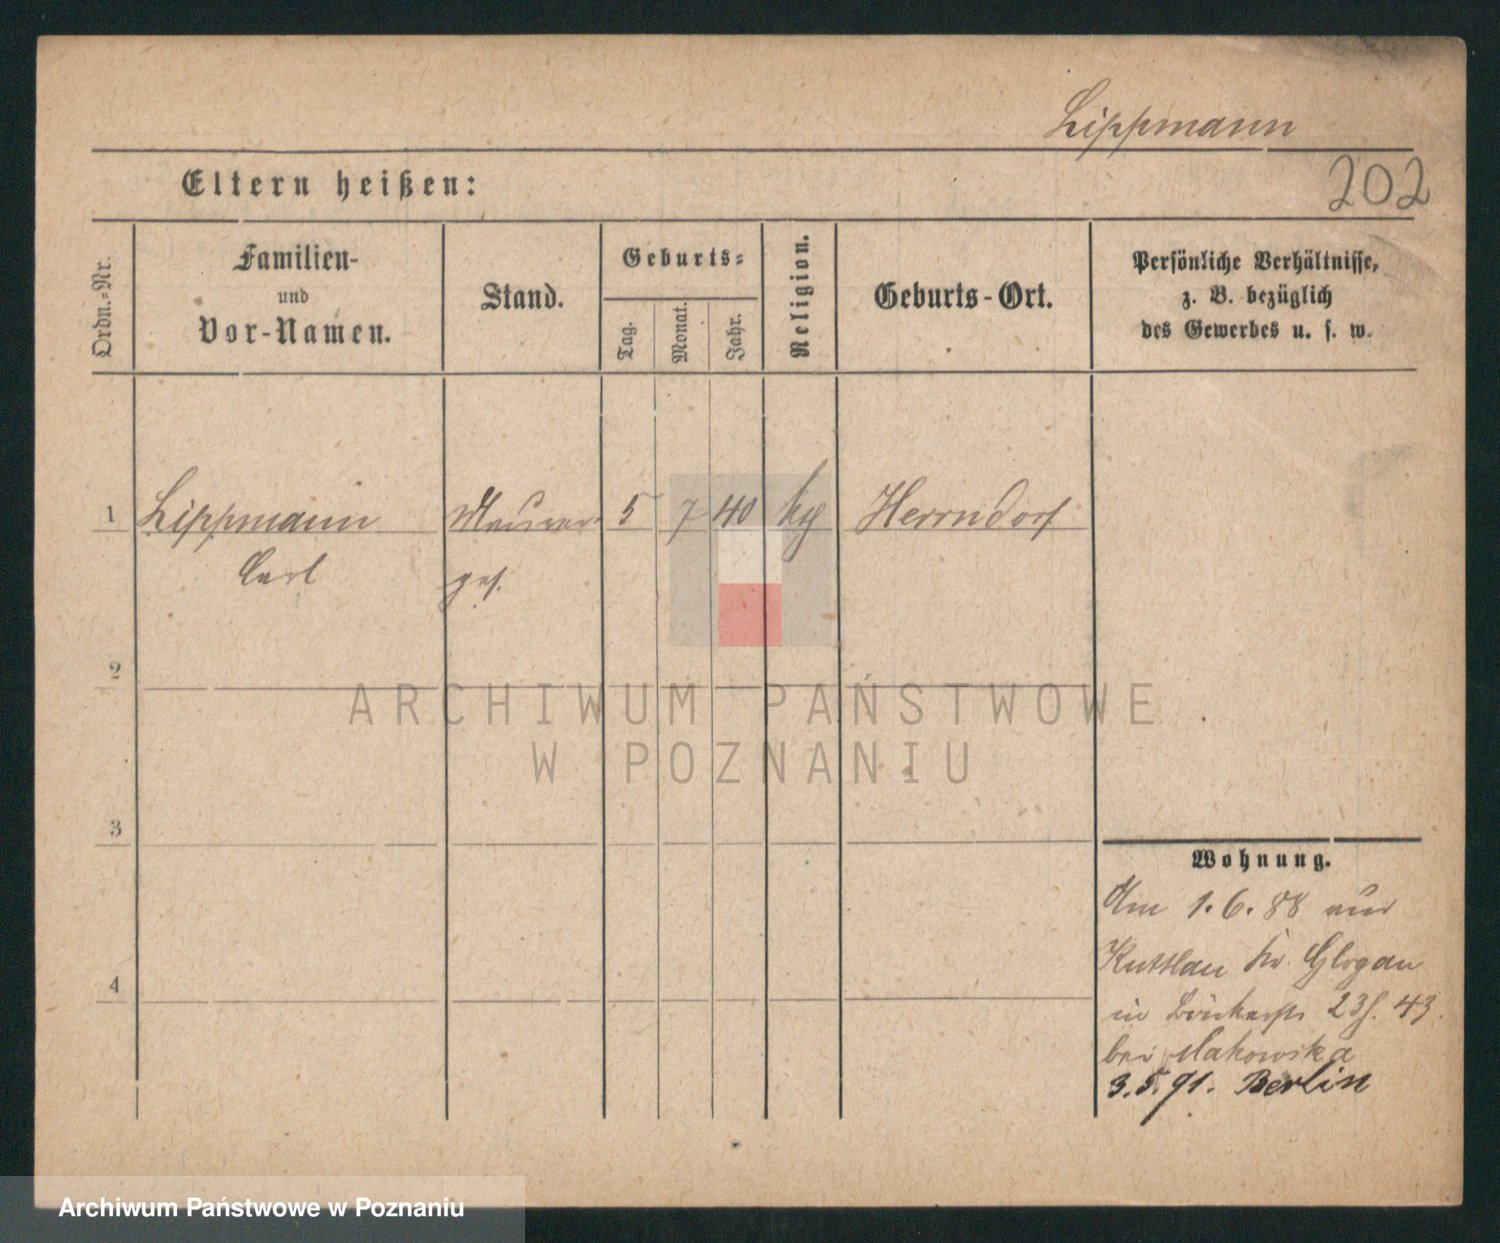 Lippmann
202
Eltern heißen:
Ordn.=Nr.
Familien-
und
Vor-Namen.
Stand.
Geburts=
Tag.
Monat.
Jahr.
Religion.
Geburts-Ort.
Persönliche Verhältnisse,
z. B. bezüglich
des Gewerbes u. s. w.
1 Lippmann Maurer 5 7 40 kg Herrndorf
Carl ges.
2
ARCHIWUM PAŃSTWOWE
W POZNANIU
3
Wohnung.
Am 1.6.88 aus
Kuttlau Kr. Glogau
4
in 23 43.
bei Makowska
3.5.91. Berlin
Archiwum Państwowe w Poznaniu